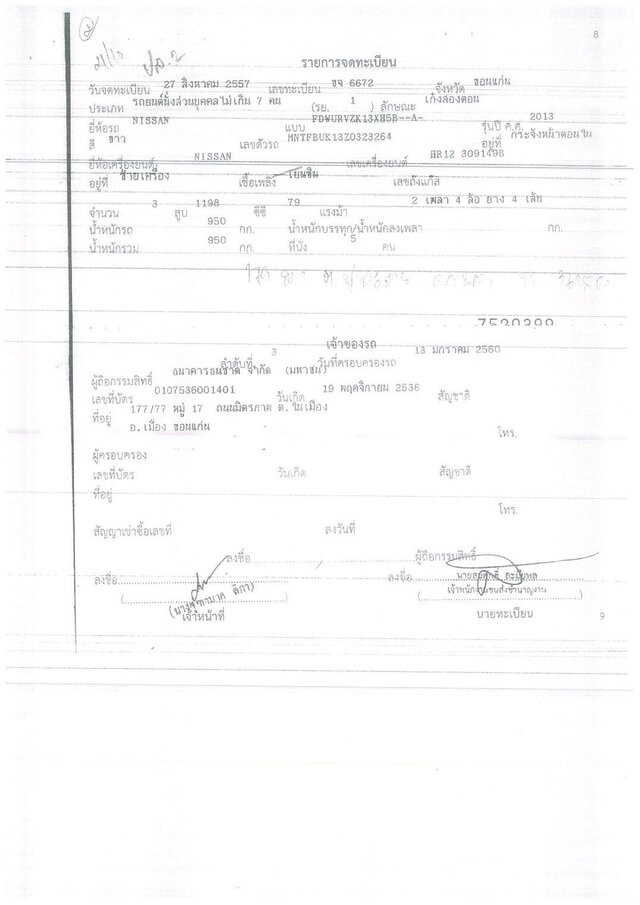 8
2
21/10 ปจ.2
รายการจดทะเบียน
วันจดทะเบียน 27 สิงหาคม 2557 เลขทะเบียน ขจ 6672 จังหวัด ขอนแก่น
ประเภท รถยนต์นั่งส่วนบุคคลไม่เกิน 7 คน (รย. 1 ) ลักษณะ เก๋งสองตอน
ยี่ห้อรถ NISSAN แบบ FDWURVZK13XH5B--A- รุ่นปี ค.ศ. 2013
สี ขาว เลขตัวรถ MNTFBUK13Z0323264 อยู่ที่ กระจังหน้าตอนใน
ยี่ห้อเครื่องยนต์ NISSAN เลขเครื่องยนต์ HR12 309149B
อยู่ที่ ซ้ายเครื่อง เชื้อเพลิง เบนซิน เลขถังแก๊ส
จำนวน 3 สูบ 1198 ซีซี 79 แรงม้า 2 เพลา 4 ล้อ ยาง 4 เส้น
น้ำหนักรถ 950 กก. น้ำหนักบรรทุก/น้ำหนักลงเพลา กก.
น้ำหนักรวม 950 กก. ที่นั่ง 5 คน
7530399
เจ้าของรถ
ลำดับที่ 3 วันที่ครอบครองรถ 13 มกราคม 2560
ผู้ถือกรรมสิทธิ์ ธนาคารธนชาต จำกัด (มหาชน)
เลขที่บัตร 0107536001401 วันเกิด 19 พฤศจิกายน 2536 สัญชาติ
ที่อยู่ 177/77 หมู่ 17 ถนนมิตรภาพ ต.ในเมือง
อ.เมือง ขอนแก่น
โทร.
ผู้ครอบครอง
เลขที่บัตร วันเกิด สัญชาติ
ที่อยู่
โทร.
สัญญาเช่าซื้อเลขที่ ลงวันที่
ลงชื่อ ผู้ถือกรรมสิทธิ์
ลงชื่อ ลงชื่อ
เจ้าพนักงานขนส่งชำนาญงาน
เจ้าหน้าที่ นายทะเบียน
9